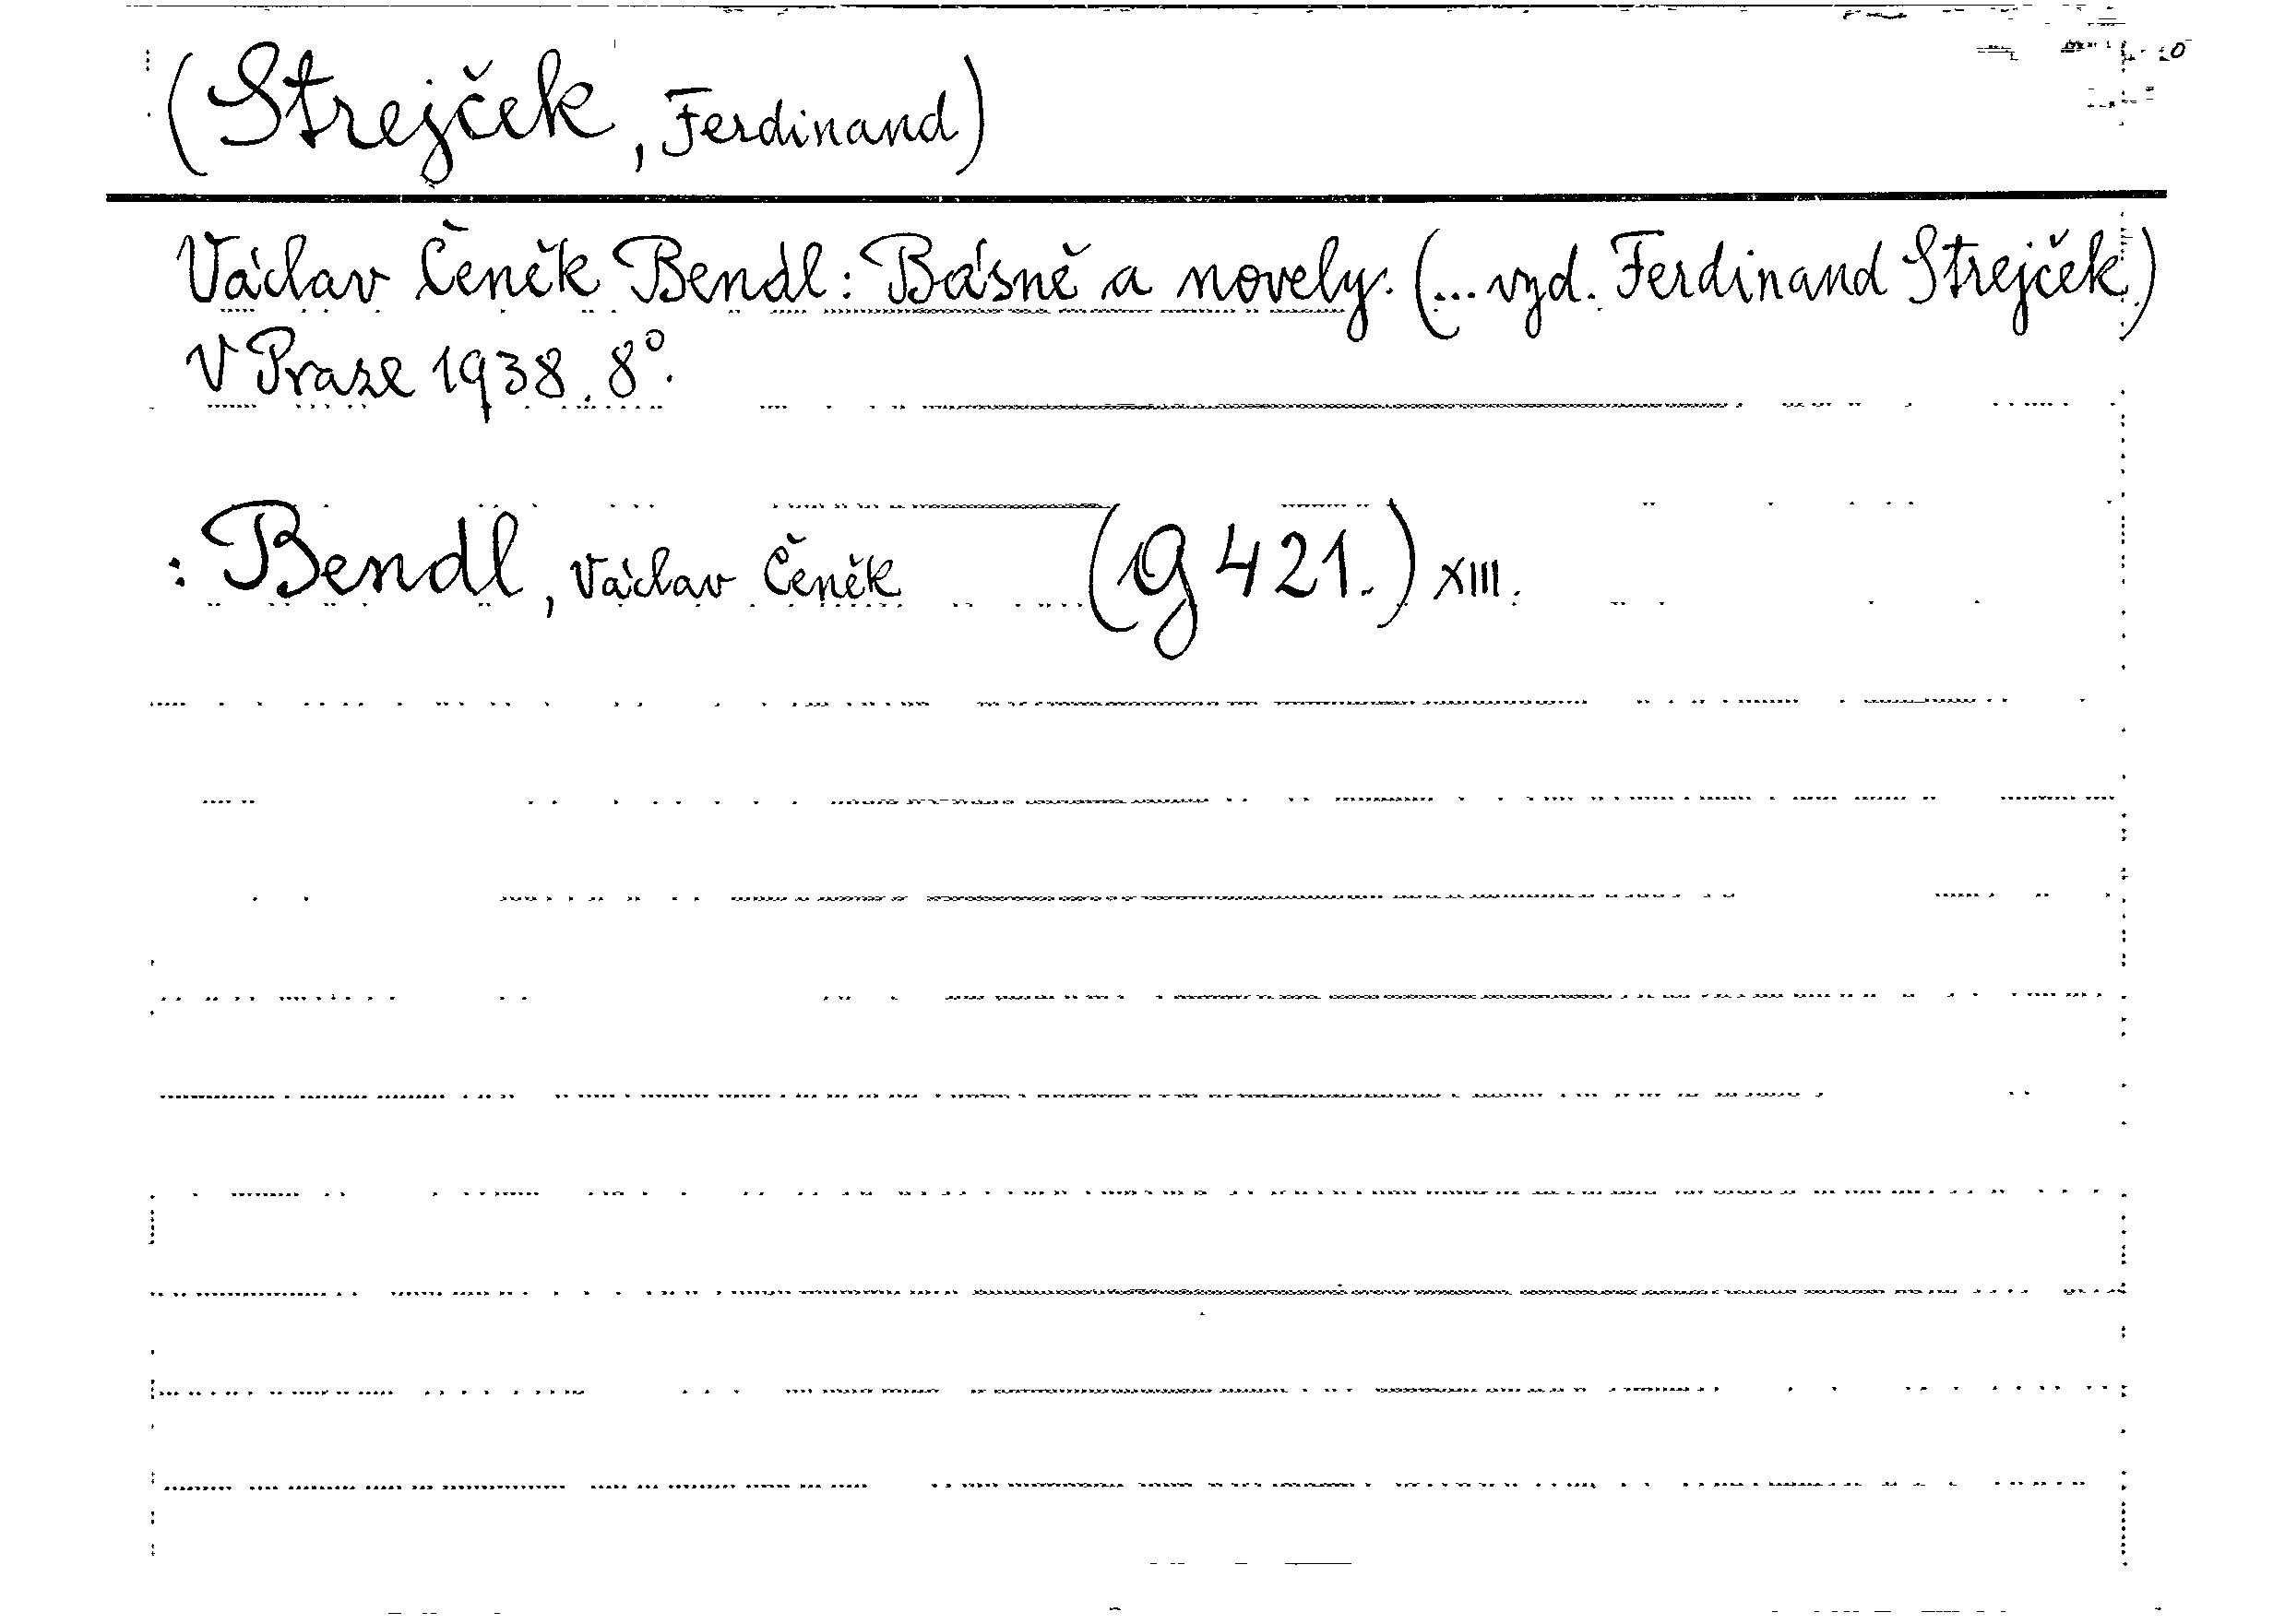 (Strejček, Ferdinand)
Václav Čeněk Bendl: Básně a novely. (... vyd. Ferdinand Strejček.)
V Praze 1938. 8°.
: Bendl, Václav Čeněk (g 421.) XIII.